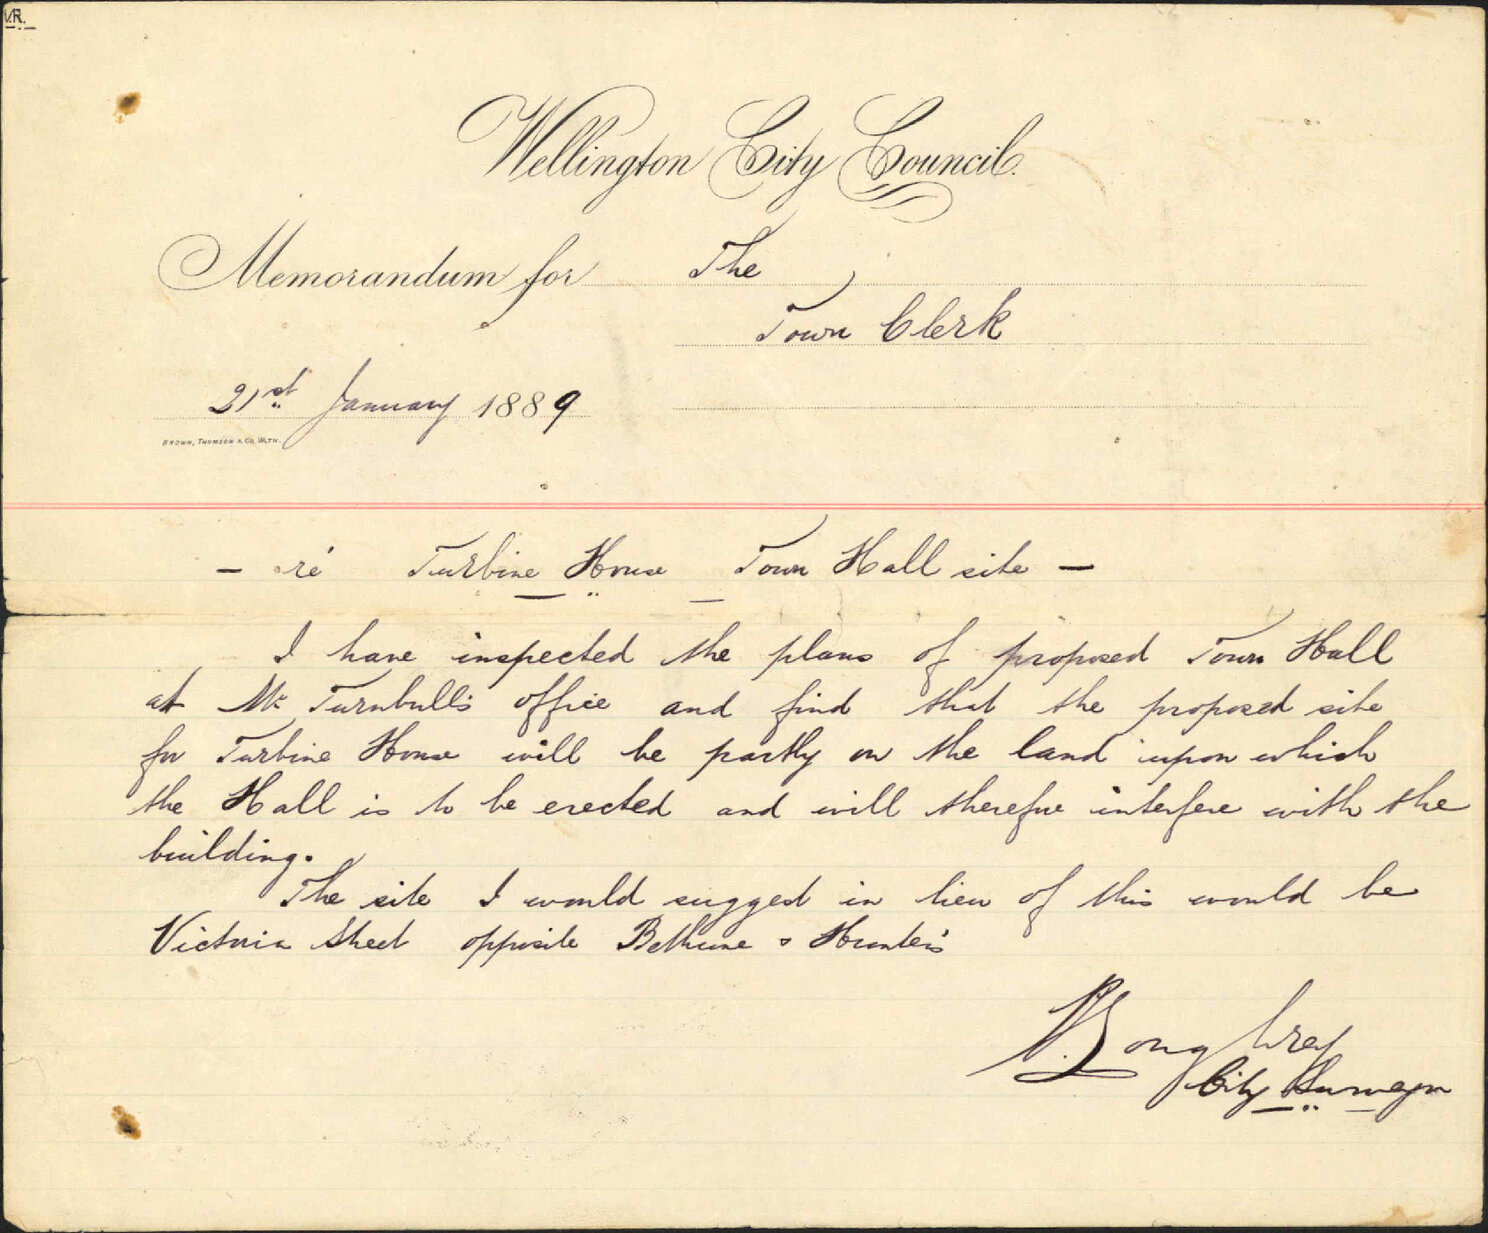 V.R.
Wellington City Council.
Memorandum for The
Town Clerk
21st January 1889
BROWN, THOMSON & CO, WLTN.
– re Turbine House Town Hall site –
I have inspected the plans of proposed Town Hall
at Mr Turnbull's office and find that the proposed site
for Turbine House will be partly on the land upon which
the Hall is to be erected and will therefore interfere with the
building.
The site I would suggest in lieu of this would be
Victoria Street opposite Bethune & Hunter's
Loughrey
City Surveyor